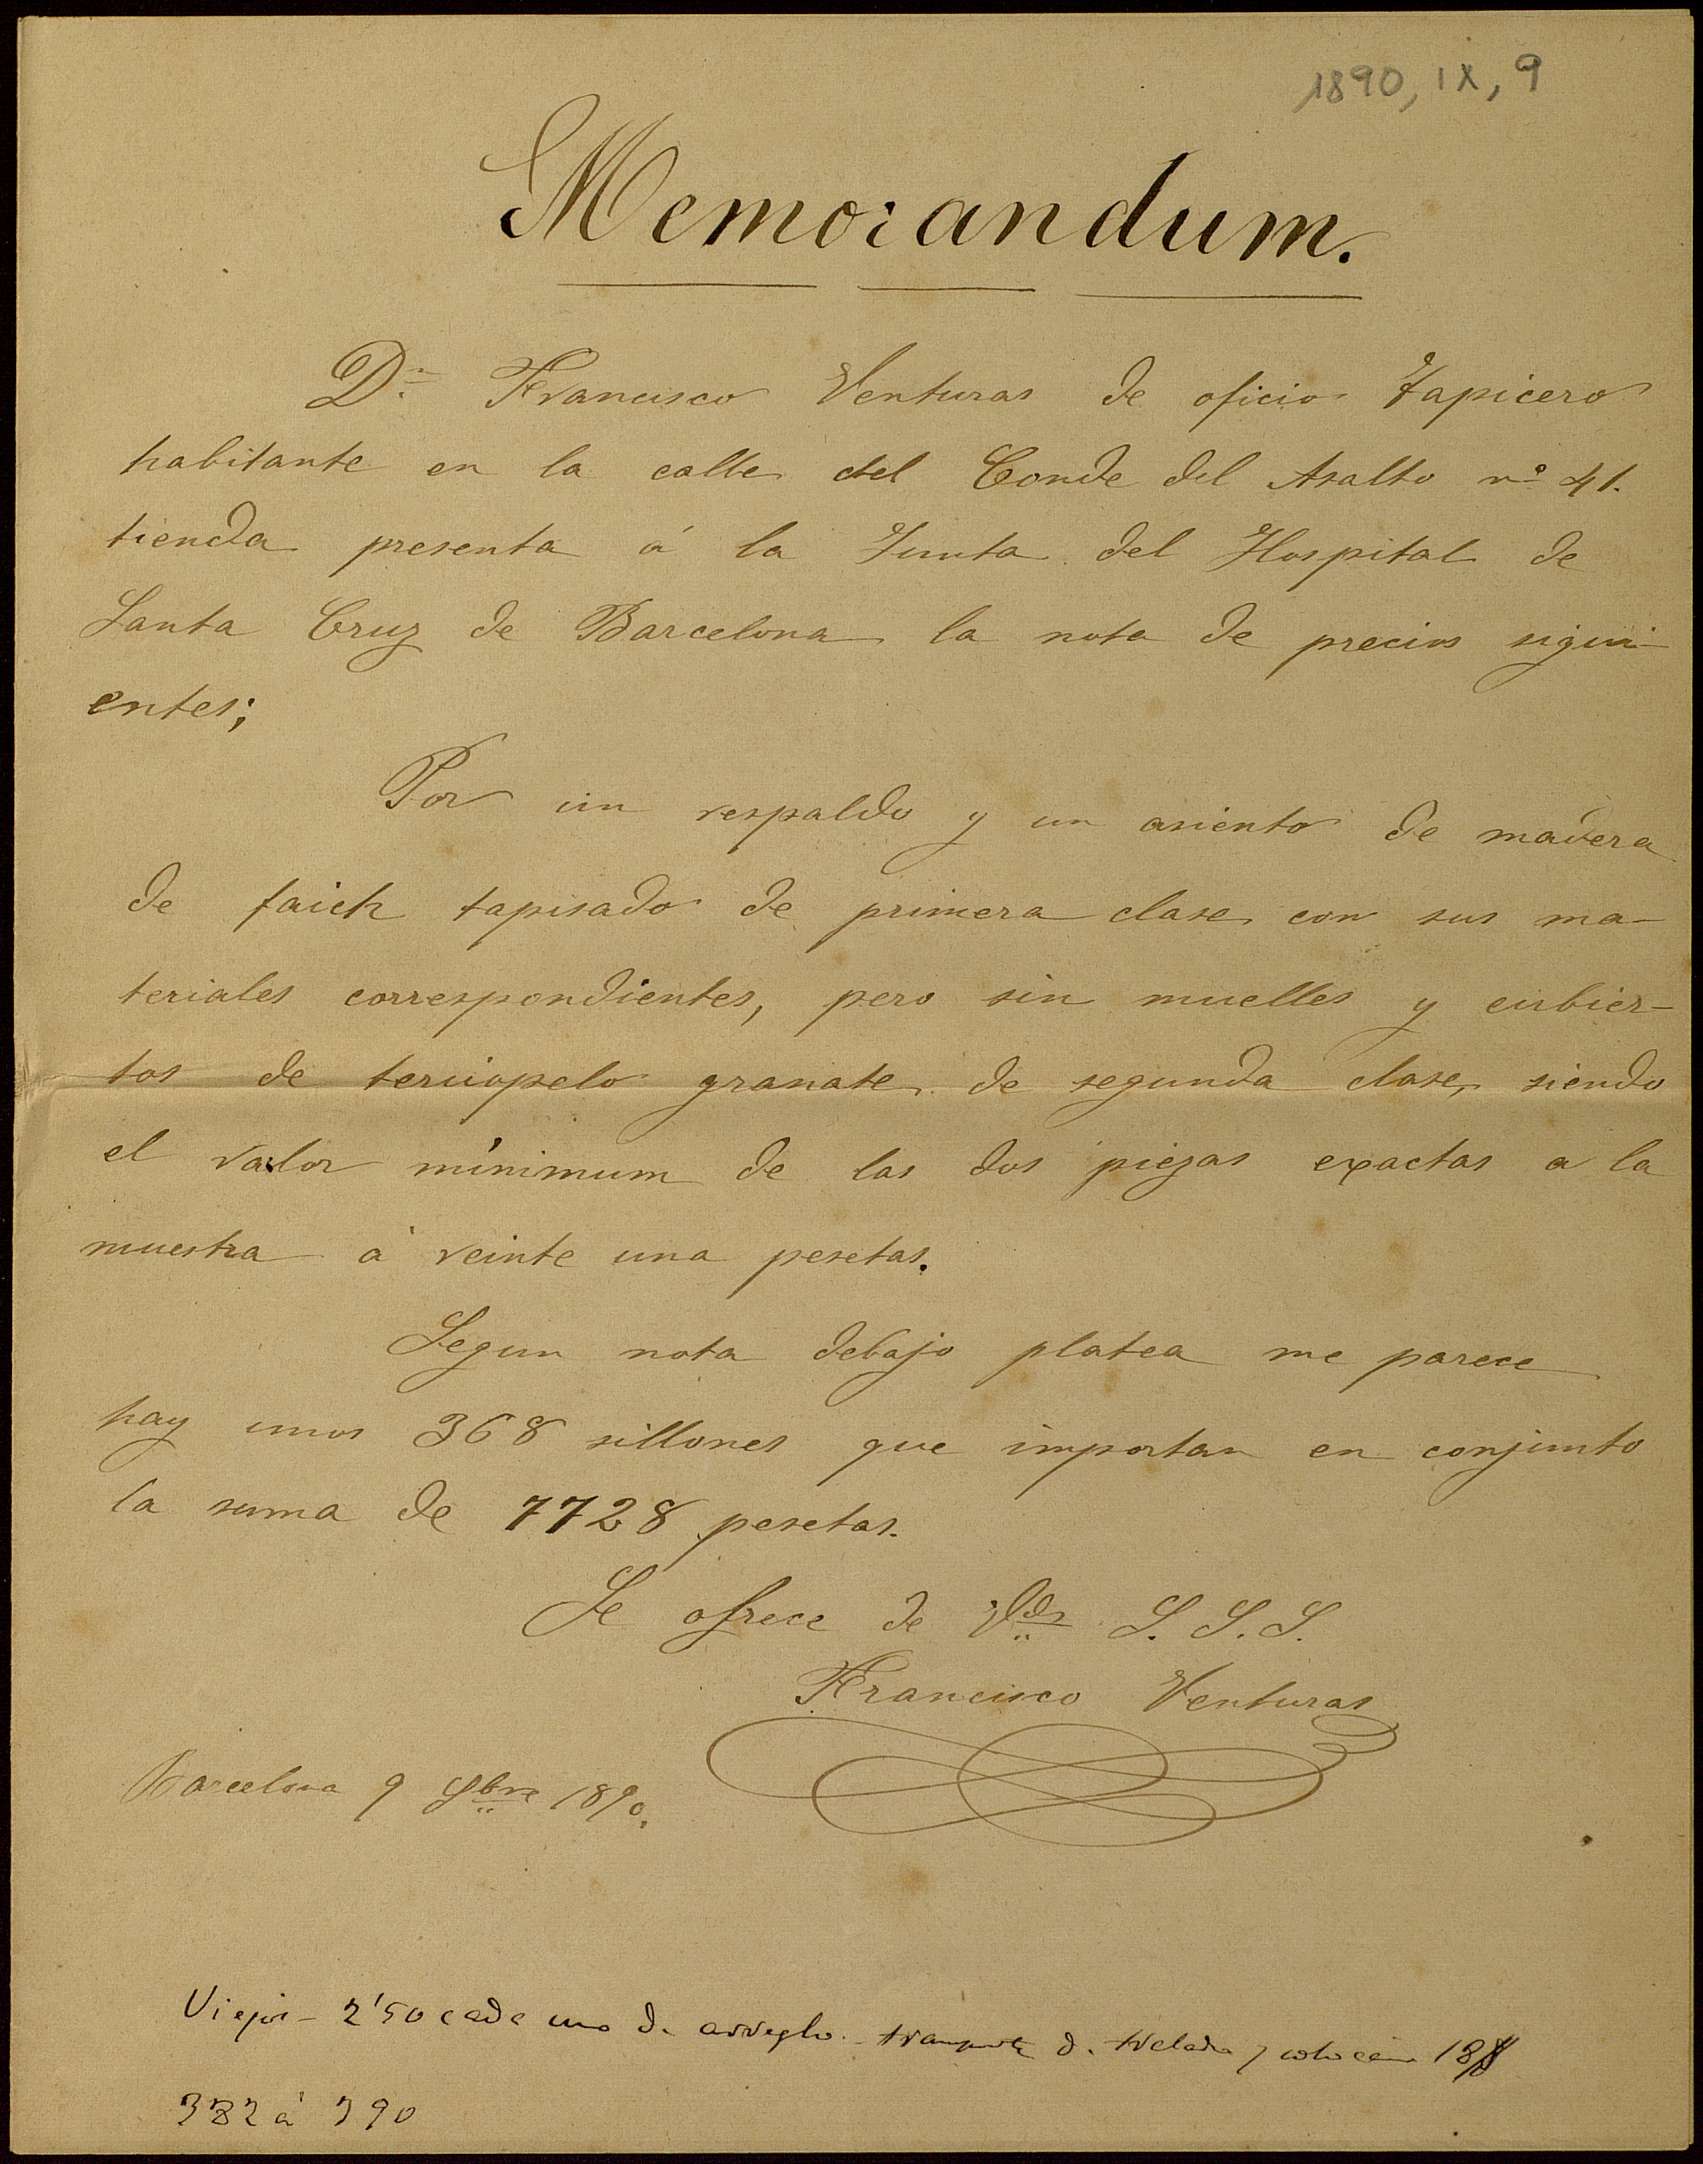 1890, IX, 9
Memorandum.
Dn. Francisco Venturas de oficio Tapicero
habitante en la calle del Conde del Asalto nº 41.
tienda presenta á la Junta del Hospital de
Santa Cruz de Barcelona la nota de precios sigui-
entes;
Por un respaldo y un asiento de madera
de faich tapisado de primera clase con sus ma-
teriales correspondientes, pero sin muelles y cubier-
tos de terciopelo granate de segunda clase, siendo
el valor mínimum de las dos piezas exactas a la
muestra á veinte una pesetas.
Segun nota debajo platea me parece
hay unos 368 sillones que importan en conjunto
la suma de 7728 pesetas.
Se ofrece de Vds S. S. S.
Francisco Venturas
Barcelona 9 9bre 1890.
Viejos - 2'50 cada uno de arreglo. transporte d.  y colocacion
382 á 390